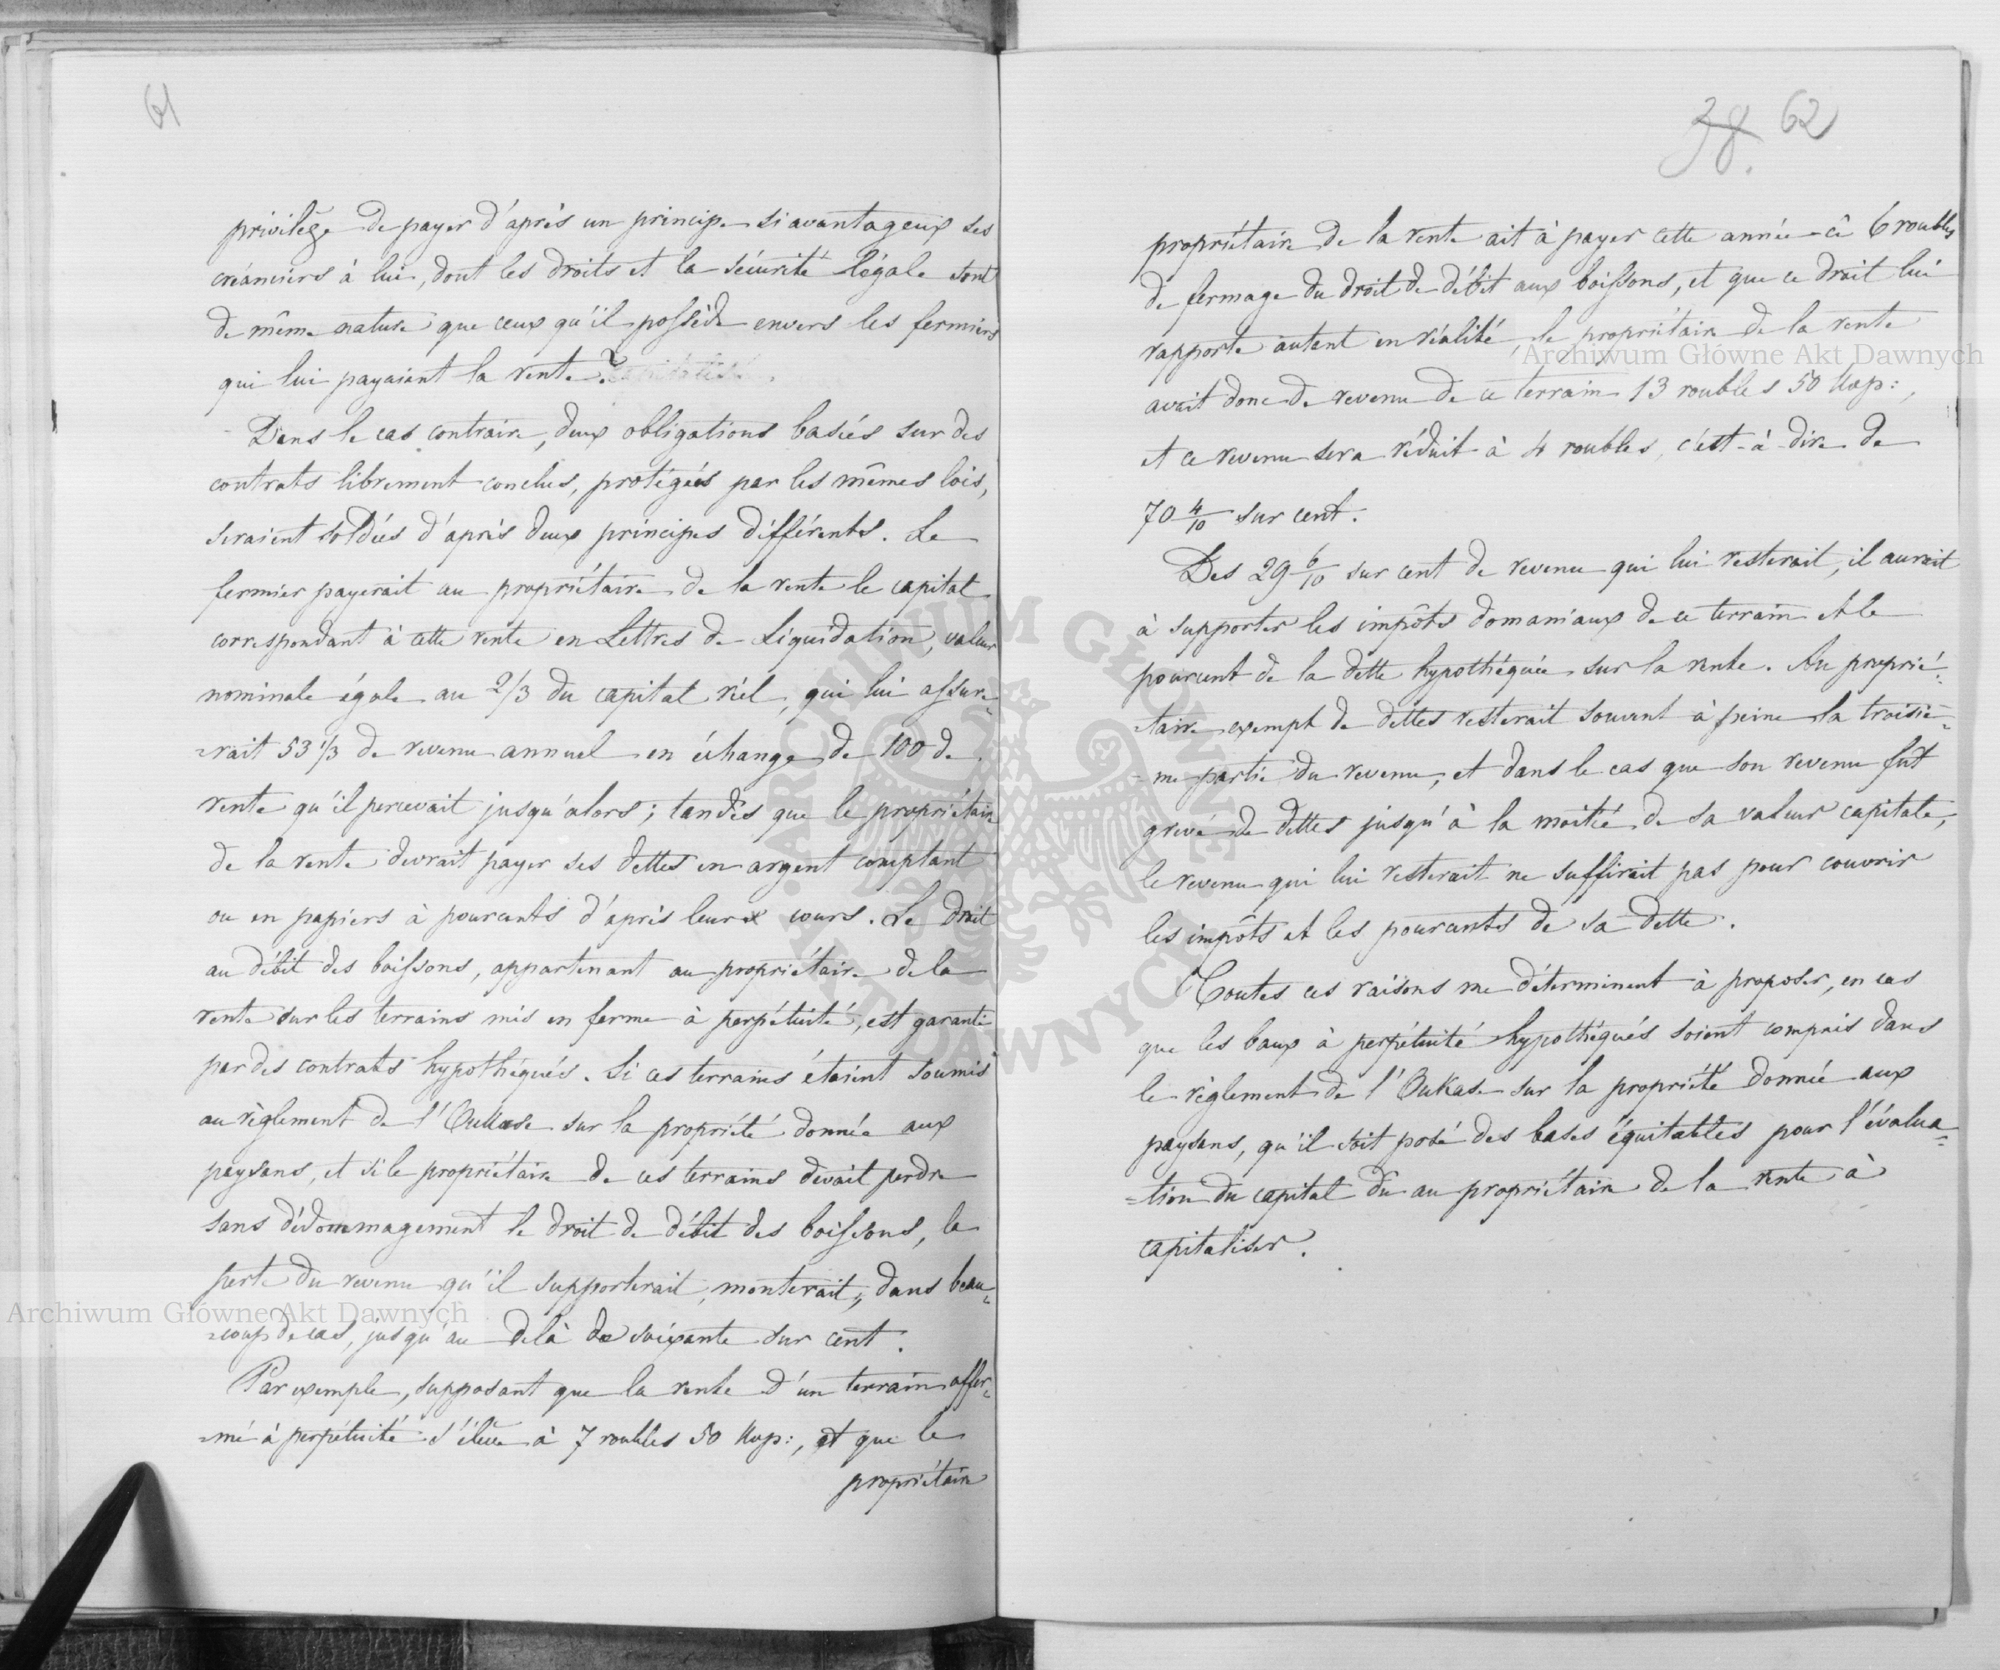 61
privilège de payer d'après un principe si avantageux ses
créanciers à lui, dont les droits et la sécurité légale sont
de même nature que ceux qu'il possède envers les fermiers
qui lui payaient la rente?
Dans le cas contraire, deux obligations basées sur des
contrats librement conclus, protégées par les mêmes lois,
seraient soldées d'après deux principes différents. Le
fermier payerait au propriétaire de la rente le capital
correspondant à cette rente en Lettres de Liquidation, valeur
nominale égale au 2/3 du capital réel, qui lui assure-
=rait 53 1/3 de revenu annuel en échange de 100 de
rente qu'il percevait jusqu'alors; tandis que le propriétaire
de la rente devrait payer ses dettes en argent comptant
ou en papiers à pourcents d'après leurs cours. Le droit
au débit des boissons, appartenant au propriétaire de la
rente sur les terrains mis en ferme à perpétuité, est garanti
par des contrats hypothéqués. Si ces terrains étaient soumis
au règlement de l'Oukase sur la propriété donnée aux
paysans, et si le propriétaire de ces terrains devait perdre
sans dédommagement le droit de débit des boissons, la
perte du revenu qu'il supporterait, monterait, dans beau-
=coup de cas, jusqu'au delà de soixante sur cent.
Par exemple, supposant que la rente d'un terrain affer-
=mé à perpétuité s'élève à 7 roubles 50 kop:, et que le
propriétaire
38. 62
propriétaire de la rente ait à payer cette année-ci 6 roubles
de fermage du droit de débit aux boissons, et que ce droit lui
rapporte autant en réalité, le propriétaire de la rente
avait donc de revenu de ce terrain 13 roubles 50 kop:,
et ce revenu sera réduit à 4 roubles, c'est-à-dire de
70 4/10 sur cent.
Des 29 6/10 sur cent de revenu qui lui resterait, il aurait
à supporter les impôts domaniaux de ce terrain et le
pourcent de la dette hypothéquée sur la rente. Au proprié-
taire exempt de dettes resterait souvent à peine la troisiè-
=me partie du revenu, et dans le cas que son revenu fût
grevé de dettes jusqu'à la moitié de sa valeur capitale,
le revenu qui lui resterait ne suffirait pas pour couvrir
les impôts et les pourcents de sa dette.
Toutes ces raisons me déterminent à proposer, en cas
que les baux à perpétuité hypothéqués soient compris dans
le règlement de l'Oukase sur la propriété donnée aux
paysans, qu'il soit posé des bases équitables pour l'évalua-
=tion du capital du au propriétaire de la rente à
capitaliser.
Archiwum Główne Akt Dawnych
Archiwum Główne Akt Dawnych
ARCHIWUM GŁÓWNE AKT DAWNYCH